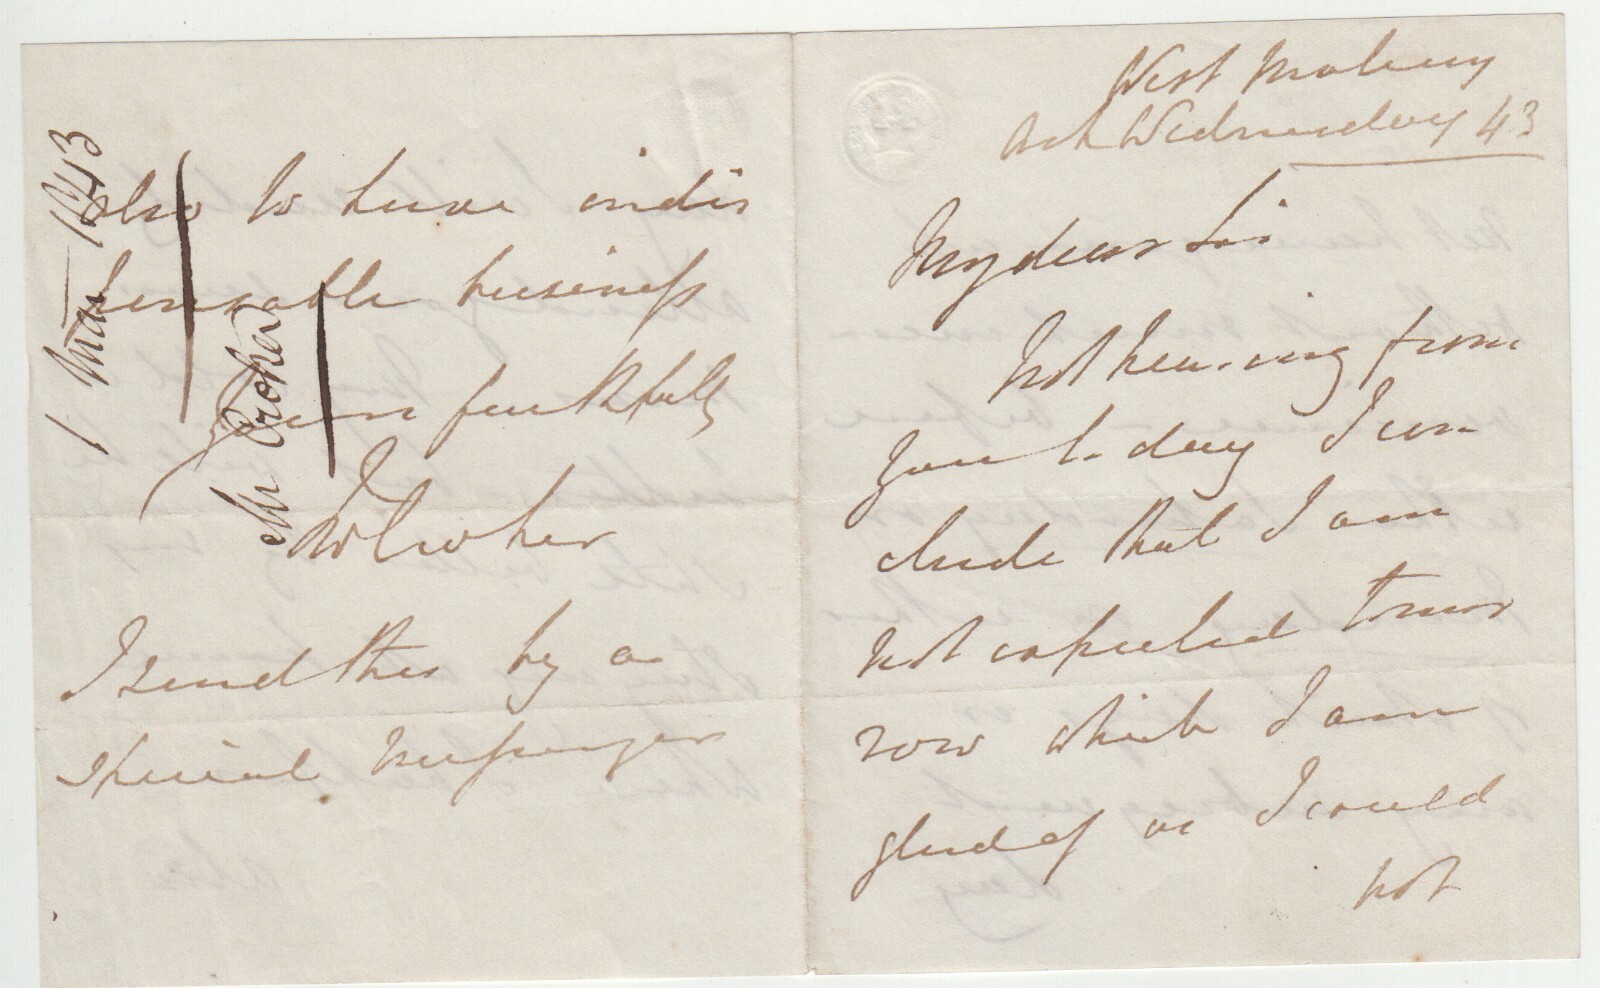 West Molesey
Ash Wednesday 43
My dear Sir
Not hearing from
you to-day I con
clude that I am
not expected tomor
row which I am
glad of as I could
not
also to have indis
pensable business
Yours faithfully
JWCroker
I send this by a
special messenger
1 Mar 1843
Mr Croker